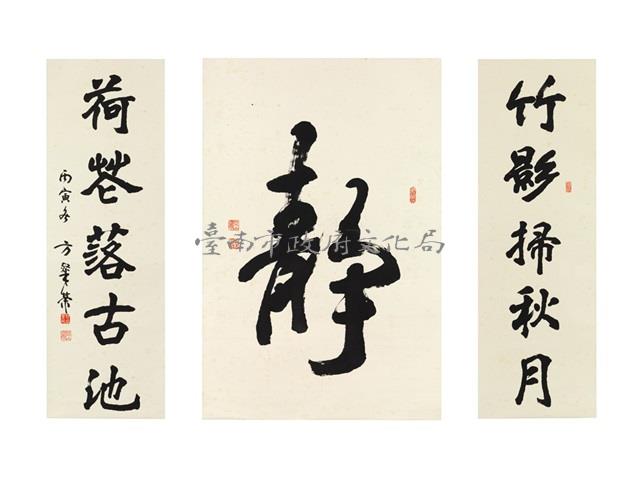 竹影掃秋月
靜
荷花落古池
丙寅冬 方
臺南市政府文化局